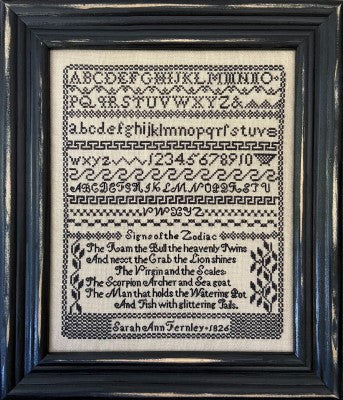 ABCDEFGHIJKLMNO
PQRSTUVWXYZ&
abcdefghijklmnopqrſstuvs
wxyz 12345678910
ABCDEFGHIJKLMNOPQRSTU
VWXYZ
Signs of the Zodiac
The Ram the Bull the heavenly Twins
And next the Crab the Lion shines
The Virgin and the Scales
The Scorpion Archer and Sea goat
The Man that holds the Watering Pot
And Fish with glittering Tails.
Sarah Ann Fernley • 1826